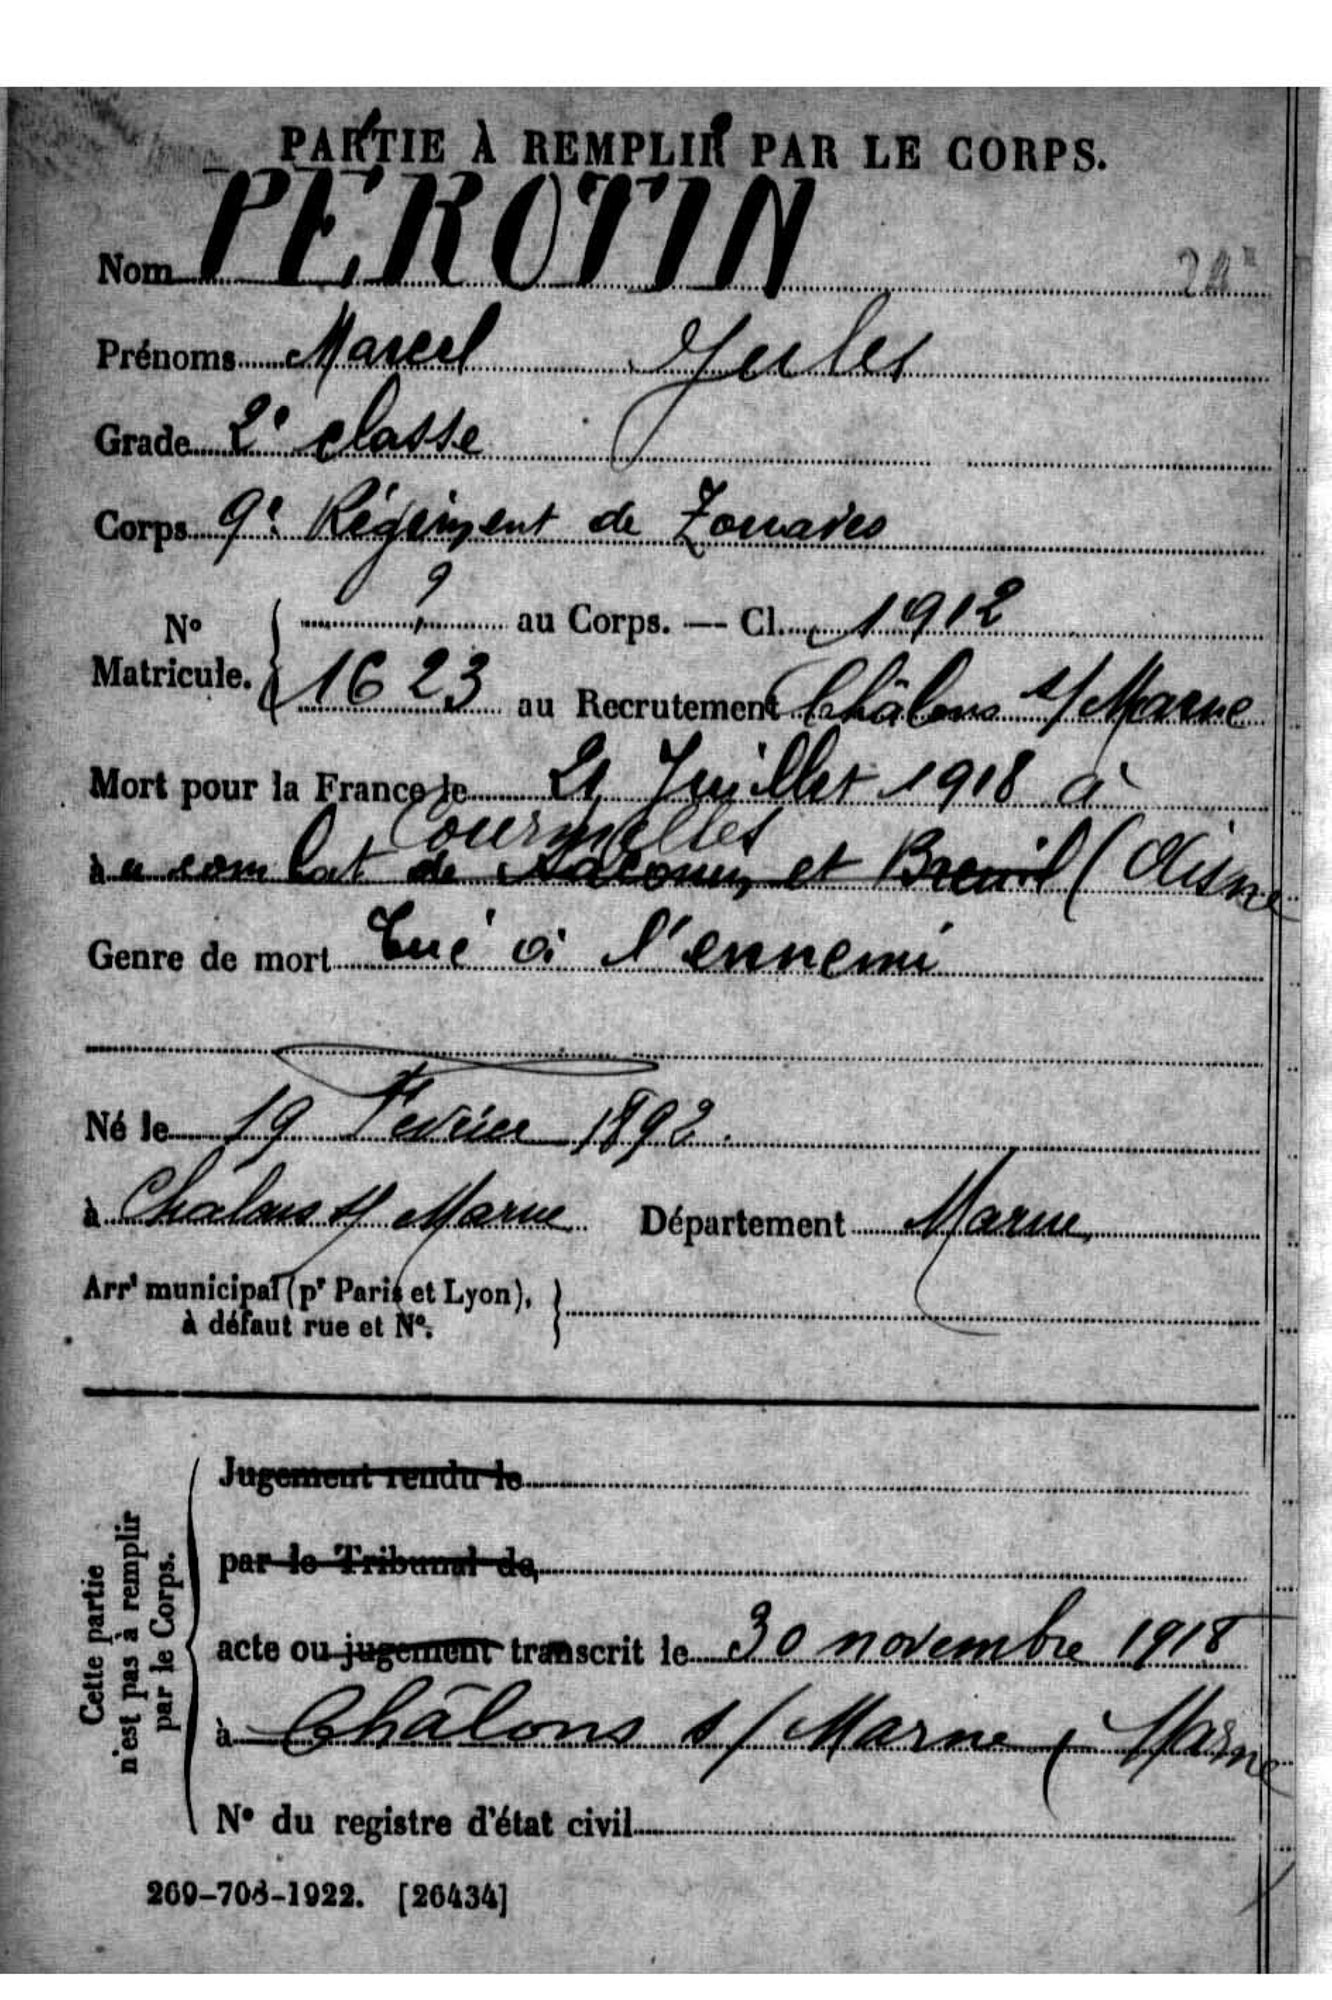 PARTIE À REMPLIR PAR LE CORPS.
Nom PÉROTIN
Prénoms Marcel Jules
Grade 2e classe
Corps 9e Régiment de Zouaves
No Matricule. 9 au Corps. — Cl. 1912
1623 au Recrutement Châlons s/ Marne
Mort pour la France le 21 Juillet 1918 à
Courmelles
à u combat de et Breuil (Aisne
Genre de mort Tué à l'ennemi
Né le 19 Fevrier 1892.
à Chalons s/ Marne Département Marne
Arrt municipal (pr Paris et Lyon),
à défaut rue et No.
Cette partie
n'est pas à remplir
par le Corps.
Jugement rendu le
par le Tribunal de
acte ou jugement transcrit le 30 novembre 1918
à Châlons s/ Marne (Marne
No du registre d'état civil
269-708-1922. [26434]